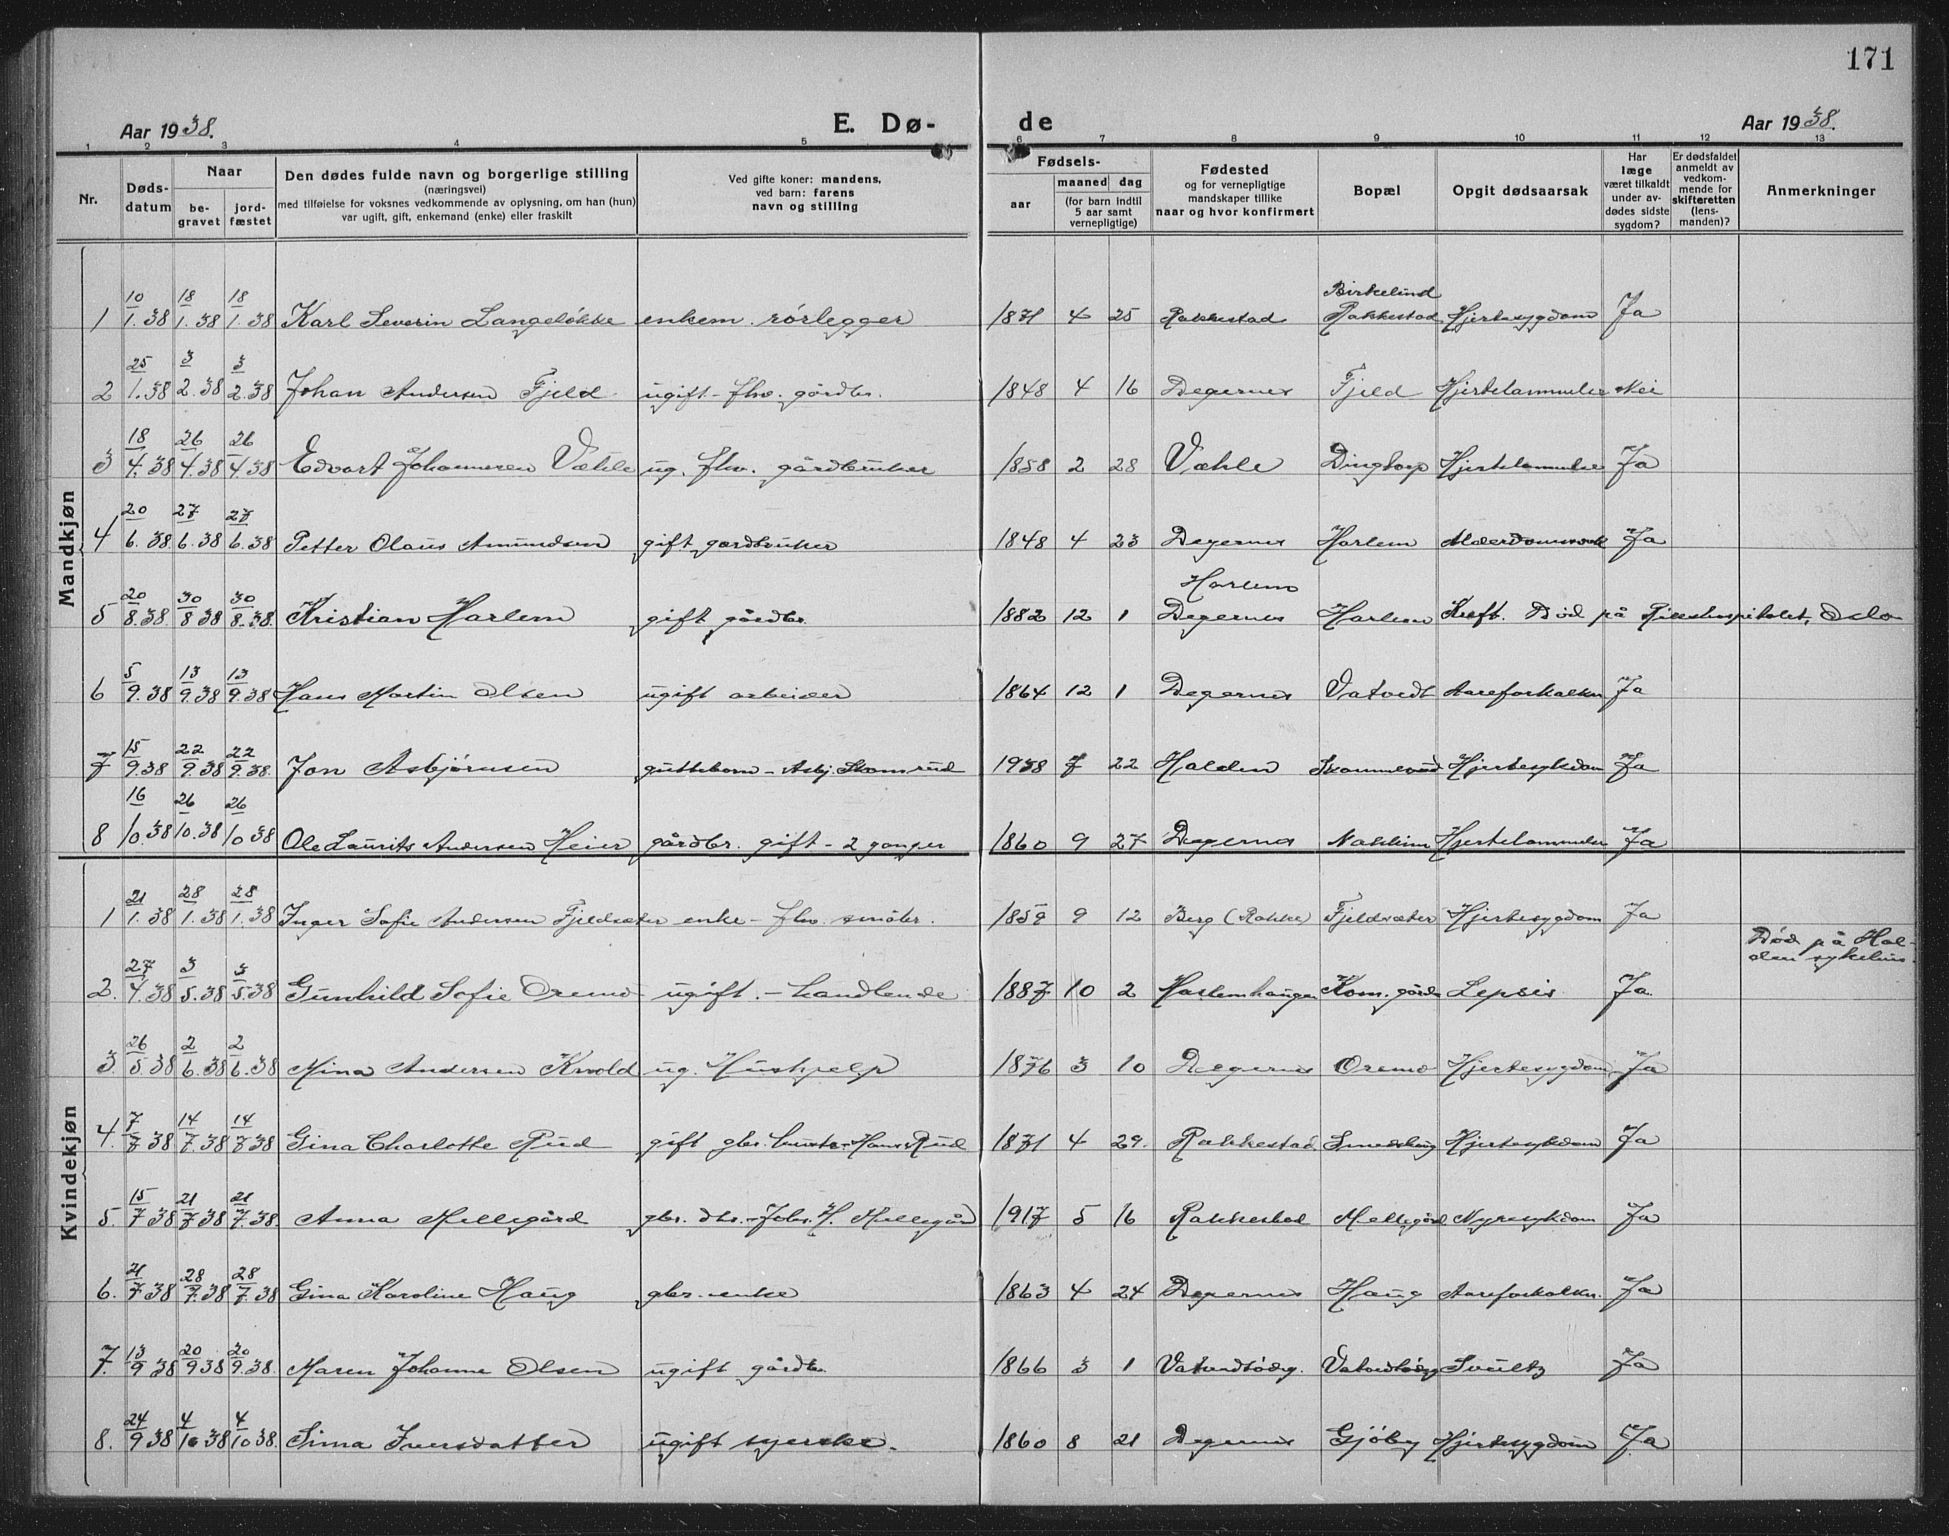 171
Aar 1938. E. Dø- de Aar 1938.
1 2 3 4 5 6 7 8 9 10 11 12 13
Nr.
Døds-
datum
Naar
be-
gravet
jord-
fæstet
Den dødes fulde navn og borgerlige stilling
(næringsvei)
med tilføielse for voksnes vedkommende av oplysning, om han (hun)
var ugift, gift, enkemand (enke) eller fraskilt
Ved gifte koner: mandens,
ved barn: farens
navn og stilling
Fødsels-
aar
maaned dag
(for barn indtil
5 aar samt
vernepligtige)
Fødested
og for vernepligtige
mandskaper tillike
naar og hvor konfirmert
Bopæl
Opgit dødsaarsak
Har
læge
været tilkaldt
under av-
dødes sidste
sygdom?
Er dødsfaldet
anmeldt av
vedkom-
mende for
skifteretten
(lens-
manden)?
Anmerkninger
Mandkjøn
Birkelund
1 10/1.38 18/1.38 18/1.38 Karl Severin Langeløkke enkem. rørlegger 1871 4 25 Rakkestad Rakkestad Hjertesygdom Ja
2 25/1.38 3/2.38 3/2.38 Johan Andersen Fjeld ugift - fhv. gårdbr. 1848 4 16 Degernes Fjeld Hjertelammelse Nei
3 18/4.38 26/4.38 26/4.38 Edvart Johannesen Væhle ug. fhv. gårdbruker 1858 2 28 Væhle Dingtorp Hjertelammelse Ja
4 20/6.38 27/6.38 27/6.38 Petter Olaus Amundsen gift gardbruker 1848 4 23 Degernes Harlem Alderdomssvakh Ja
Harlem
5 20/8.38 30/8 38 30/8.38 Kristian Harlem gift gårdbr. 1882 12 1 Degernes Harlem Kreft. Død på Rikshospitalet, Oslo
6 5/9.38 13/9.38 13/9.38 Hans Martin Olsen ugift arbeider 1864 12 1 Degernes Vatvedt Aareforkalkn Ja
7 15/9.38 22/9.38 22/9.38 Jon Asbjørnsen guttebarn - Asbj. Skamrud 1938 7 22 Halden Hjertesykdom Ja
8 16/10.38 26/10.38 26/10 38 Ole Laurits Andersen Heier gårdbr. gift - 2 ganger 1860 9 27 Degernes Nakkim Hjertelammelse Ja
Kvindekjøn
1 21/1.38 28/1.38 28/1.38 Inger Sofie Andersen Fjeldsæter enke - fhv. småbr. 1859 9 12 Berg (Rakke) Fjeldsæter Hjertesygdom Ja
Død på Hal-
den sykehus.
2. 27/4.38 3/5.38 3/5.38 Gunhild Sofie Oremo ugift. - handlende 1887 10 2 Harlemhaugen Kom. gård Lepsis Ja.
3. 26/5.38 2/6.38 2/6.38 Mina Andersen Kvold ug. Hushjelp 1876 3 10 Degernes Oremo Hjertesygdom Ja
4. 7/7 38 14/7.38 14/7 38 Gina Charlotte Rud gift gbr. hustr. Hans Rud 1871 4 29. Rakkestad Hjertesykdom Ja
5. 15/7 38 21/7 38 21/7.38. Anna Mellegård gbr. dtr. - Johs. H. Mellegård 1917 5 16 Rakkestad Mellegård Nyresykdom Ja
6. 21/7 38 28/7.38 28/7.38 Gina Karoline Haug gbr. enke 1863 4 24 Degernes Haug Aareforkalkn. Ja
7. 13/9 38 20/9 38 20/9.38. Maren Johanne Olsen ugift gårdbr 1866 3 1 Ja
8. 24/9 38 4/10 38 4/10 38. Sina Iversdatter ugift syerske. 1860 8 21 Degernes Gjøby Hjertesygdom Ja